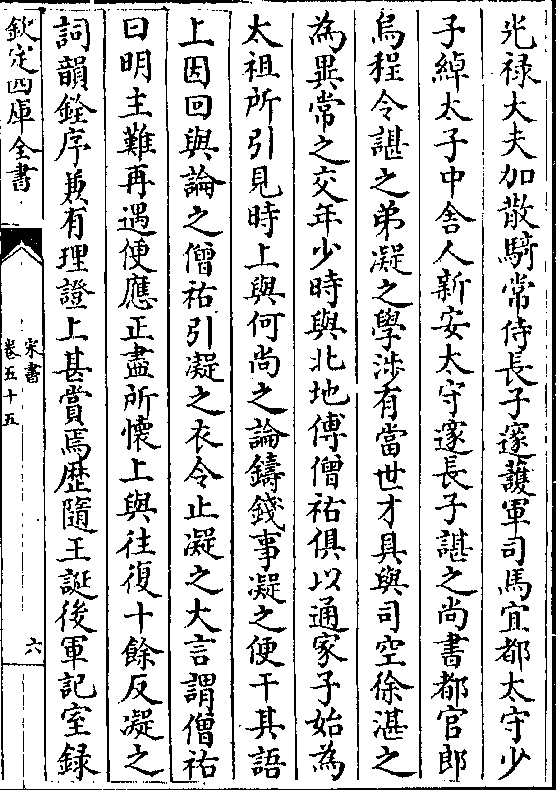 光禄大夫加散騎常侍長子邃護軍司馬宜都太守少
子綽太子中舍人新安太守邃長子諶之尚書都官郎
烏程令諶之弟凝之學涉有當世才具與司空徐湛之
為異常之交年少時與北地傅僧祐俱以通家子始為
太祖所引見時上與何尚之論鑄錢事凝之便干其語
上因回與論之僧祐引凝之衣令止凝之大言謂僧祐
曰明主難再遇便應正盡所懷上與往復十餘反凝之
詞韻銓序兼有理證上甚賞焉歴隨王誕後軍記室録
欽定四庫全書
宋書
卷五十五
六